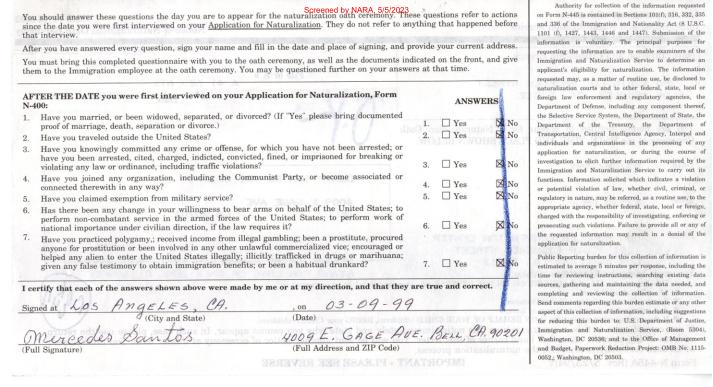 Screened by NARA, 5/5/2023
You should answer these questions the day you are to appear for the naturalization oath ceremony. These questions refer to actions
since the date you were first interviewed on your Application for Naturalization. They do not refer to anything that happened before
that interview.
After you have answered every question, sign your name and fill in the date and place of signing, and provide your current address.
You must bring this completed questionnaire with you to the oath ceremony, as well as the documents indicated on the front, and give
them to the Immigration employee at the oath ceremony. You may be questioned further on your answers at that time.
AFTER THE DATE you were first interviewed on your Application for Naturalization, Form
N-400:
ANSWERS
1. Have you married, or been widowed, separated, or divorced? (If "Yes" please bring documented
proof of marriage, death, separation or divorce.)
1. ☐ Yes ☒ No
2. Have you traveled outside the United States?
2. ☐ Yes ☒ No
3. Have you knowingly committed any crime or offense, for which you have not been arrested; or
have you been arrested, cited, charged, indicted, convicted, fined, or imprisoned for breaking or
violating any law or ordinance, including traffic violations?
3. ☐ Yes ☒ No
4. Have you joined any organization, including the Communist Party, or become associated or
connected therewith in any way?
4. ☐ Yes ☒ No
5. Have you claimed exemption from military service?
5. ☐ Yes ☒ No
6. Has there been any change in your willingness to bear arms on behalf of the United States; to
perform non-combatant service in the armed forces of the United States; to perform work of
national importance under civilian direction, if the law requires it?
6. ☐ Yes ☒ No
7. Have you practiced polygamy; received income from illegal gambling; been a prostitute, procured
anyone for prostitution or been involved in any other unlawful commercialized vice; encouraged or
helped any alien to enter the United States illegally; illicitly trafficked in drugs or marihuana;
given any false testimony to obtain immigration benefits; or been a habitual drunkard?
7. ☐ Yes ☒ No
I certify that each of the answers shown above were made by me or at my direction, and that they are true and correct.
Signed at LOS ANGELES, CA. , on 03-09-99
(City and State) (Date)
Mercedes Santos 4009 E. GAGE AVE. BELL, CA. 90201
(Full Signature) (Full Address and ZIP Code)
Authority for collection of the information requested
on Form N-445 is contained in Sections 101(f), 316, 332, 335
and 336 of the Immigration and Nationality Act (8 U.S.C.
1101 (f), 1427, 1443, 1446 and 1447). Submission of the
information is voluntary. The principal purposes for
requesting the information are to enable examiners of the
Immigration and Naturalization Service to determine an
applicant's eligibility for naturalization. The information
requested may, as a matter of routine use, be disclosed to
naturalization courts and to other federal, state, local or
foreign law enforcement and regulatory agencies, the
Department of Defense, including any component thereof,
the Selective Service System, the Department of State, the
Department of the Treasury, the Department of
Transportation, Central Intelligence Agency, Interpol and
individuals and organizations in the processing of any
application for naturalization, or during the course of
investigation to elicit further information required by the
Immigration and Naturalization Service to carry out its
functions. Information solicited which indicates a violation
or potential violation of law, whether civil, criminal, or
regulatory in nature, may be referred, as a routine use, to the
appropriate agency, whether federal, state, local or foreign,
charged with the responsibility of investigating, enforcing or
prosecuting such violations. Failure to provide all or any of
the requested information may result in a denial of the
application for naturalization.
Public Reporting burden for this collection of information is
estimated to average 5 minutes per response, including the
time for reviewing instructions, searching existing data
sources, gathering and maintaining the data needed, and
completing and reviewing the collection of information.
Send comments regarding this burden estimate or any other
aspect of this collection of information, including suggestions
for reducing this burden to: U.S. Department of Justice,
Immigration and Naturalization Service, (Room 5304),
Washington, DC 20536; and to the Office of Management
and Budget, Paperwork Reduction Project: OMB No. 1115-
0052; Washington, DC 20503.